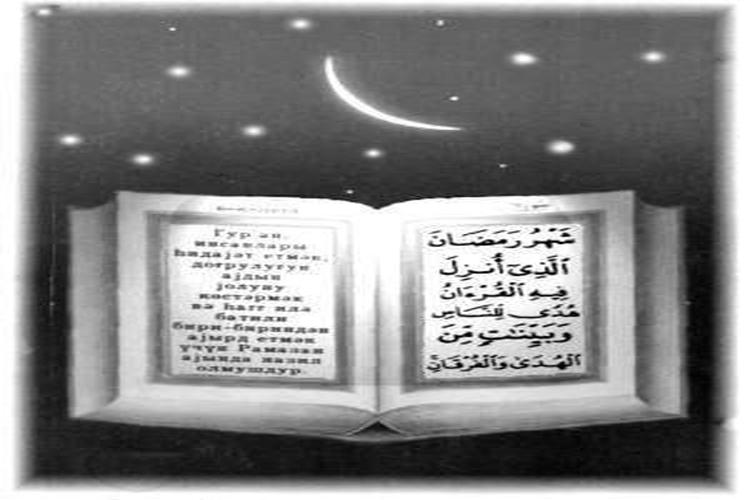 Гур'ан,
инсанлары
һидајәт етмәк,
доғрулуғун
ајдын
јолуну
көстәрмәк
вә һагг илә
батили
бири-бириндән
ајырд етмәк
үчүн Рамазан
ајында назил
олмушдур.
شَهْرُ رَمَضَانَ
ٱلَّذِىٓ أُنزِلَ
فِيهِ ٱلْقُرْءَانُ
هُدًى لِّلنَّاسِ
وَبَيِّنَٰتٍ مِّنَ
ٱلْهُدَىٰ وَٱلْفُرْقَانِ